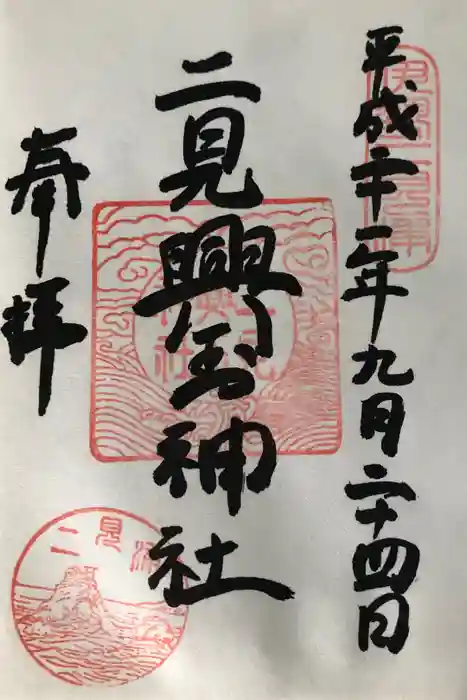 平成二十一年九月二十四日
伊勢二見浦
二見興玉神社
奉拝
二見浦